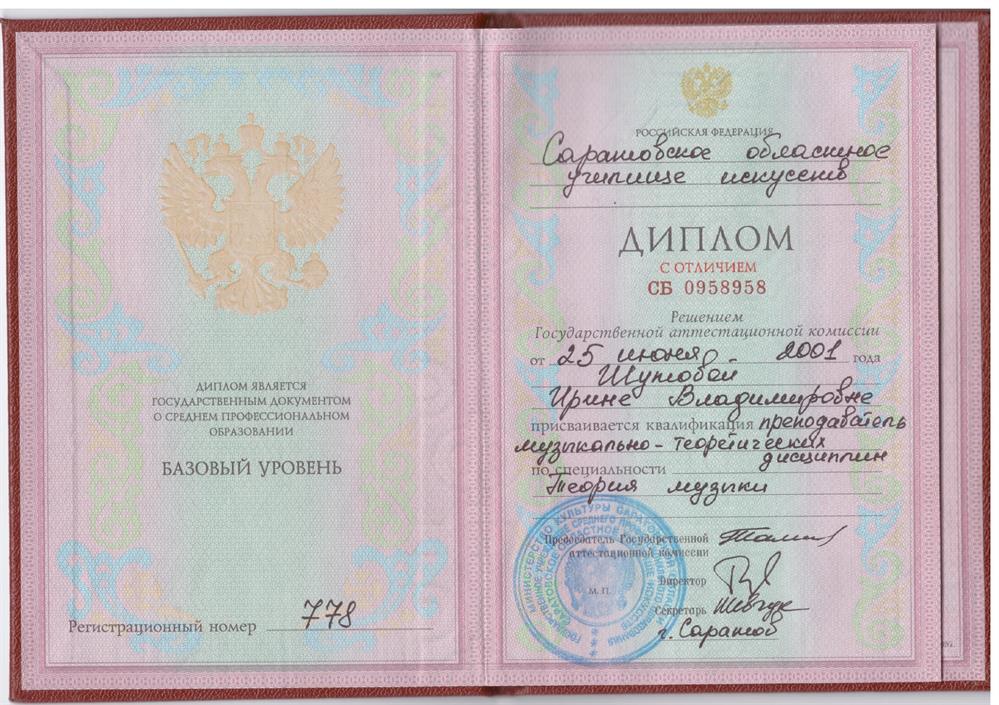 ДИПЛОМ ЯВЛЯЕТСЯ
ГОСУДАРСТВЕННЫМ ДОКУМЕНТОМ
О СРЕДНЕМ ПРОФЕССИОНАЛЬНОМ
ОБРАЗОВАНИИ
БАЗОВЫЙ УРОВЕНЬ
Регистрационный номер 778
РОССИЙСКАЯ ФЕДЕРАЦИЯ
Саратовское областное
училище искусств
ДИПЛОМ
С ОТЛИЧИЕМ
СБ 0958958
Решением
Государственной аттестационной комиссии
от 25 июня 2001 года
Шутовой
Ирине Владимировне
присваивается квалификация преподаватель
музыкально-теоретических
дисциплин
по специальности
Теория музыки
Председатель Государственной
аттестационной комиссии
М. П.
Директор
Секретарь
г. Саратов